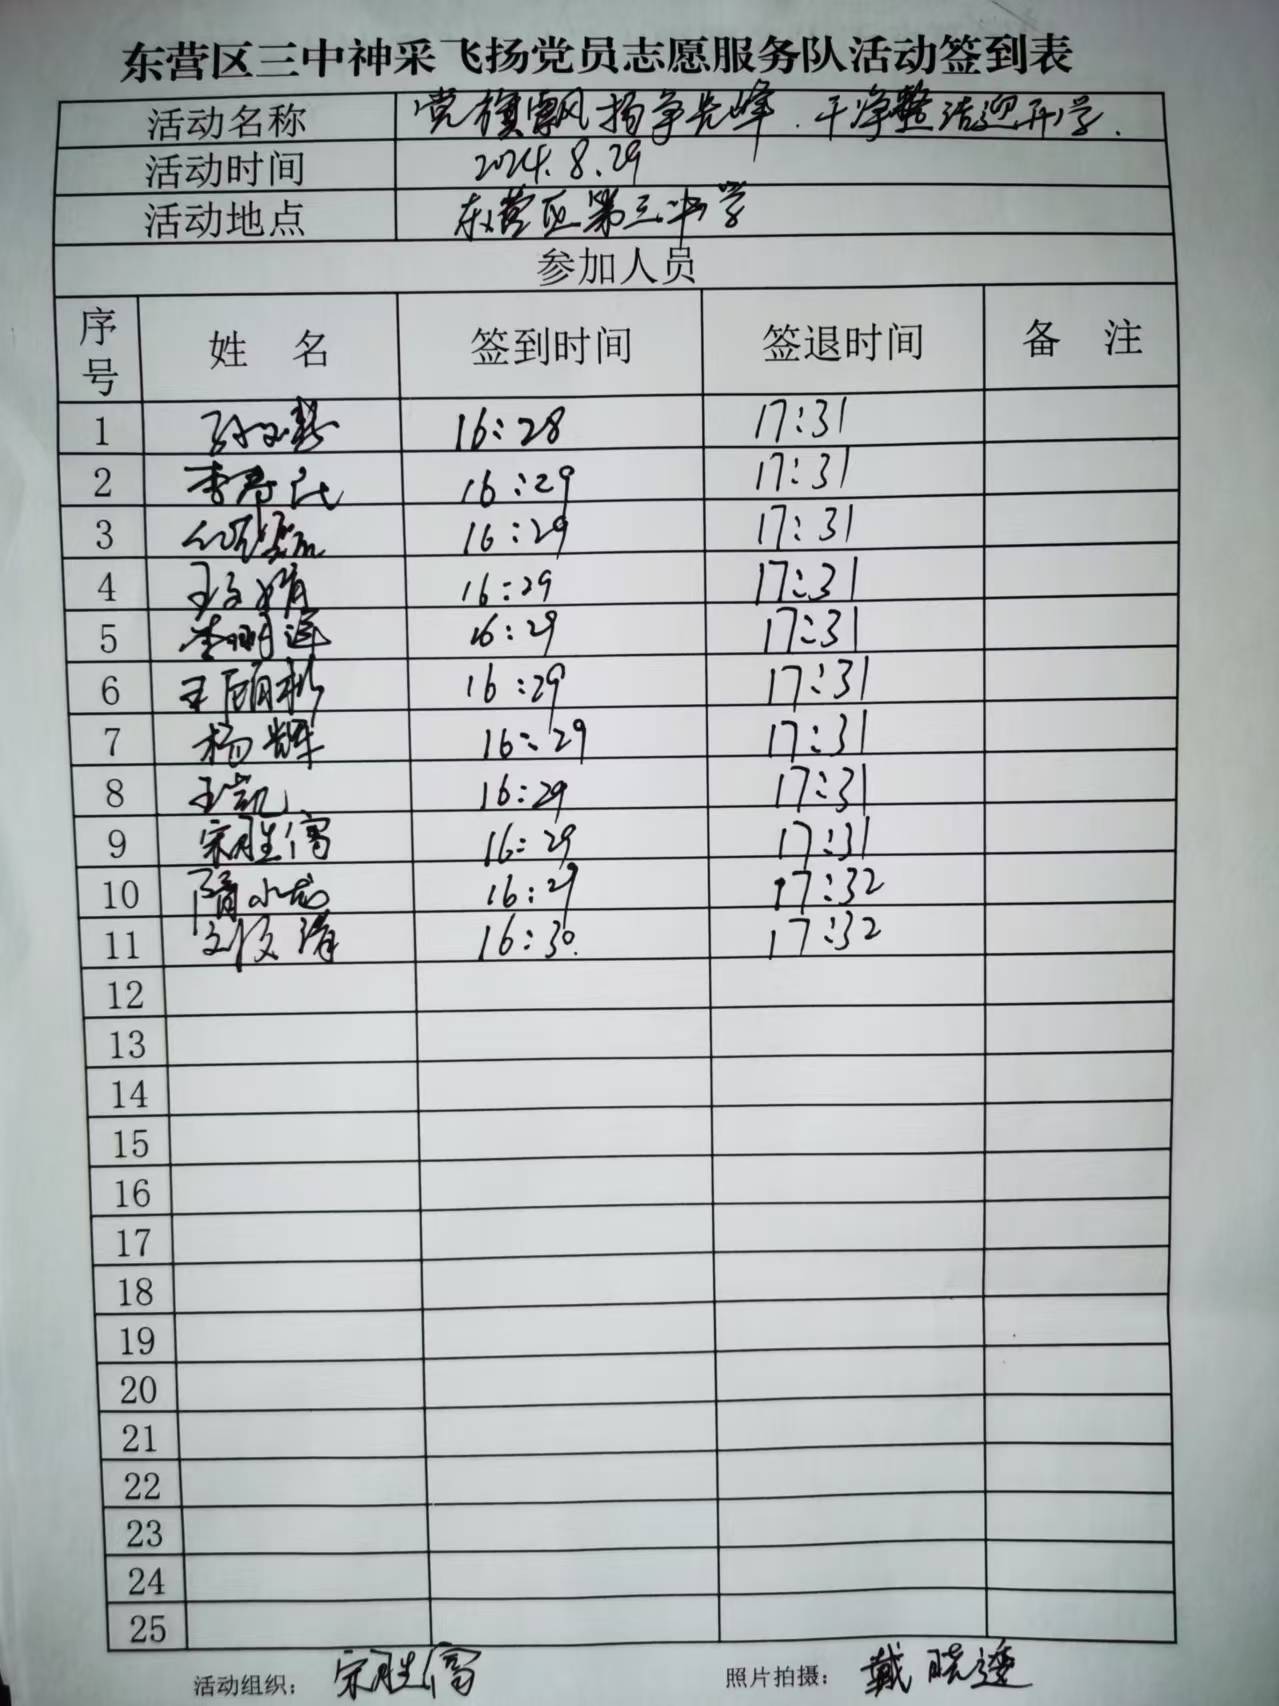 东营区三中神采飞扬党员志愿服务队活动签到表
活动名称 党旗飘扬争先峰.干净整洁迎开学.
活动时间 2024.8.29
活动地点 东营区第三中学
参加人员
序号 姓 名 签到时间 签退时间 备 注
1 16:28 17:31
2 16:29 17:31
3 16:29 17:31
4 王文娟 16:29 17:31
5 李明连 16:29 17:31
6 王颐彬 16:29 17:31
7 杨辉 16:29 17:31
8 王凯 16:29 17:31
9 宋胜儒 16:29 17:31
10 隋小龙 16:29 17:32
11 16:30. 17:32
12
13
14
15
16
17
18
19
20
21
22
23
24
25
活动组织: 宋胜儒 照片拍摄: 戴晓逶